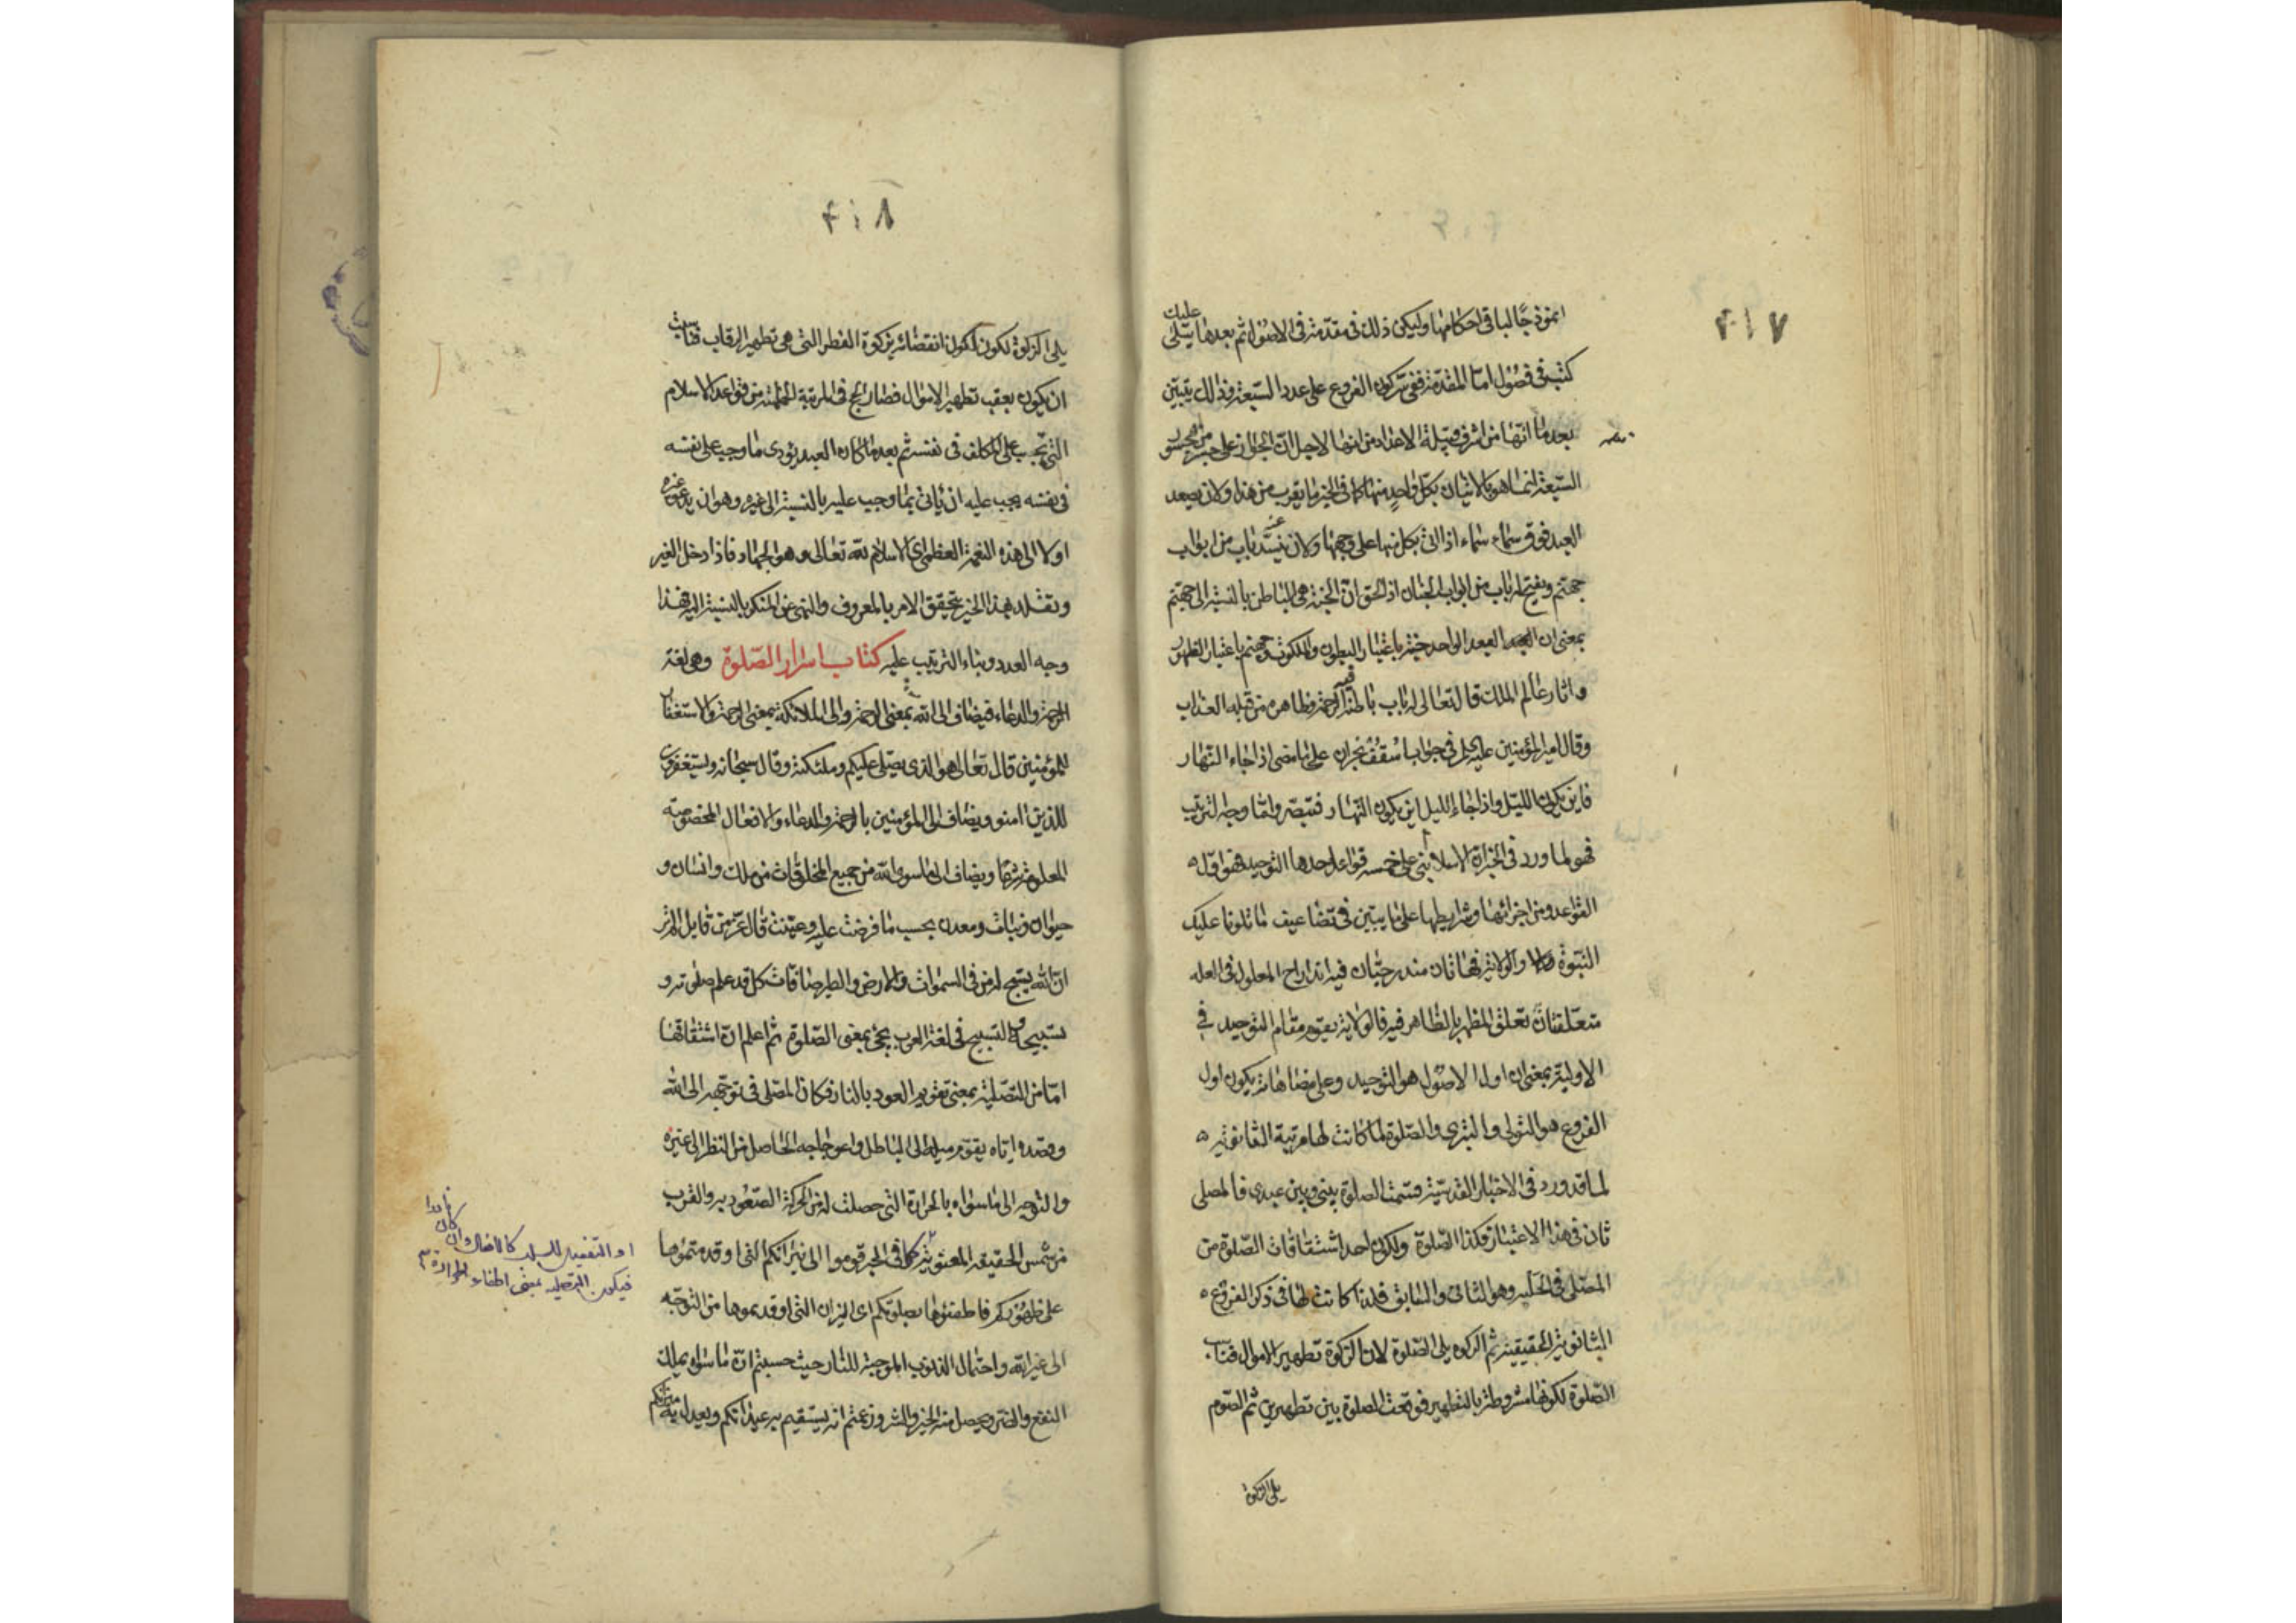 ۴۱۷
انموذجًا لباقی احکامها ولیکن ذلك فی مقدّمة فی الاصول ثم بعدها یتلی علیك
کتب فی فصول امّا المقدّمة ففی سرّ کون الفروع علی عدد السّبعة فذالك یتبیّن
بعد ما انّها من اشرف الاعداد من انها لاجل انّ الجواز علی جسر من جسور
السّبعة انما هو بالاتیان بکلّ واحدٍ منها کما فی الخبر ما یقرب من هذا ولان یصعد
العبد فوق سماء سماء اذا اتی بکل منها علی وجهها ولان ینسدّ عنه باب من ابواب
جهنّم ویفتح له باب من ابواب الجنان اذ الحق انّ الجنّة هی الباطن بالنسبة الی جهنّم
بمعنی ان الواحد جنّة باعتبار البطون والملکوت وجهنم باعتبار الظهور
واثار عالم الملك قال تعالی له باب باطنه فیه الرحمة وظاهره من قبله العذاب
وقال امیر المؤمنین علیه السلام فی جواب اسقف نجران علی ما مضی اذا جاء النّهار
فاین یکون اللیل واذا جاء اللیل این یکون النّهار فتبصّر وامّا وجه الترتیب
فهو لما ورد فی الخبر ان الاسلام بنی علی خمسه قواعد احدها التوحید فهو اوّل
القواعد ومن اجزائها وشرایطها علی ما یتبین فی تضاعیف ما تلونا علیك
النّبوّة والولایة فهاتان مندرجتان فیه اندراج المعلول فی العله
متعلّقتان تعلق المظهر بالظاهر فیه فالولایة یقوم مقام التوحید فی
الاولیة بمعنی ان اول الاصول هو التوحید وعلی مضاهاته یکون اول
الفروع هو التولی والتبری والصّلوة لما کانت لها مرتبة الثانویة
لما قد ورد فی الاخبار القدسیّة قسمت الصلوة بینی وبین عبدی فالمصلی
ثان فی هذا الاعتبار فکذا الصّلوة ولکون احد اشتقاقات الصّلوة من
المصلّی فی الحلبة وهو الثانی والسابق فلذا کانت لها فی ذکر الفروع
الثانویة الحقیقیة ثم الزکوة یلی الصّلوة لان الزکوة تطهیر الاموال فناسب
الصّلوة لکونها مشروطة بالتطهیر فوقعت الصلوة بین تطهیرین ثم الصّوم
یلی الزکوة
۴۱۸
یلی الزکوة لکون انقضائه بزکوة الفطر التی هی تطهیر الرقاب فناسب
ان یکون یعقب تطهیر الاموال فصار الحج فی المرتبة من قواعد الاسلام
التی تجب علی المکلف فی نفسه ثم بعد ما کان العبد یؤدی ما وجب علی نفسه
فی نفسه یجب علیه ان یأتی بما وجب علیه بالنسبة الی غیره وهو ان یدعو غیره
اولا الی هذه النعمة العظمی ای الاسلام لله تعالی وهو الجهاد فاذا دخل الغیر
وتقلد بهذا الخیر یتحقق الامر بالمعروف والنهی عن المنکر بالنسبة الیه فهذا
وجه العدد وبناء الترتیب علیه کتاب اسرار الصّلوة وهی لغة
الرحمة والدعاء فیضاف الی الله بمعنی الرحمة والی الملائکة بمعنی الرحمة والاستغفار
للمؤمنین قال تعالی هو الذی یصلی علیکم وملئکته وقال سبحانه ویستغفرون
للذین امنو ویضاف الی المؤمنین بالرحمة والدعاء والافعال المخصوصة
المعلومة شرعًا ویضاف الی ما سوی الله من جمیع المخلوقات من ملك وانسان و
حیوان ونبات ومعدن بحسب ما فرضت علیه وعیّنت قال عزّ من قایل الم تر
ان الله یسبّح له من فی السموات والارض والطیر صافات کل قد علم صلوته و
تسبیحه والتسبیح فی لغة العرب یجئ بمعنی الصّلوة ثم اعلم ان اشتقاقها
امّا من التّصلیة بمعنی تقویم العود بالنار فکان المصّلی فی توجّهه الی الله
وقصده ایّاه یقوّم میله الی الباطل واعوجاجه الحاصل من النظر الی غیره
والتوجه الی ما سواه بالحرارة التی حصلت له من الحرکة الصّعودیه والقرب
من شمس الحقیقه المعنویّة کما فی الخبر قوموا الی نیرانکم التی اوقدتموها
علی ظهورکم فاطفئوها بصلوتکم ای النیران التی اوقدتموها من التوجّه
الی غیر الله واحتمال الذنوب الموجبة للنار حیث حسبتم انّ ما سواه یملك
النفع والضر ویحصل منه الخیر والشر وزعمتم انه یستقیم به عیدانکم ویعدل به
او التفعیل للسلب کالافعال وان کان نادرا
فیکون التصلیه بمعنی اطفاء الحرارة